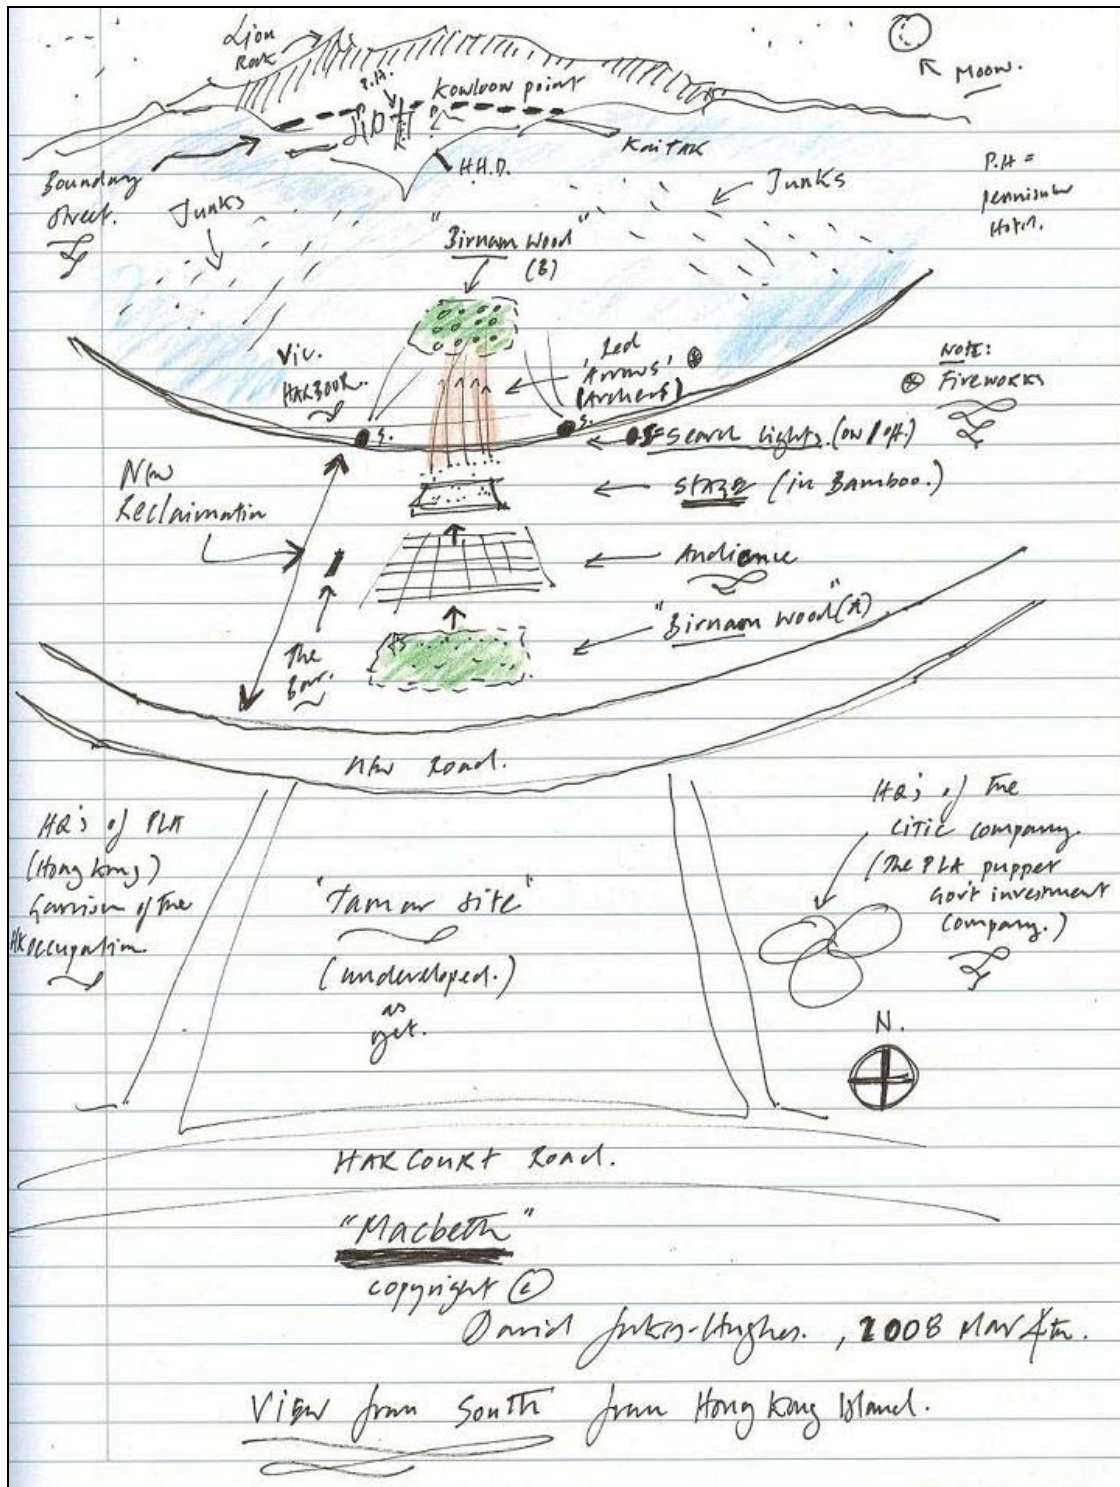 Lion
Rock
Moon.
P.H.
Kowloon point
KaiTAK
H.H.D.
Boundary
Street.
Junks
Junks
P.H =
Hotel.
"Birnam Wood"
(B)
Vic.
HARBOUR.
Red
'Arrows'
(Archers)
NOTE:
Fireworks
S.
S.
S= Search lights. (on/off.)
New
Reclaimation
STAGE (in Bamboo.)
Audience
"Birnam Wood" (A)
The
Bar.
New Road.
HQ's of PLA
(Hong Kong)
Garrison of the
HK occupation
HQ's of the
CITIC company.
(The PLA puppet
Gov't investment
Company.)
"Tamar site"
(undeveloped.)
as
yet.
N.
HARCOURT Road.
"Macbeth"
copyright ©
David Jukes-Hughes., 2008 Mar 4th.
View from South from Hong Kong Island.